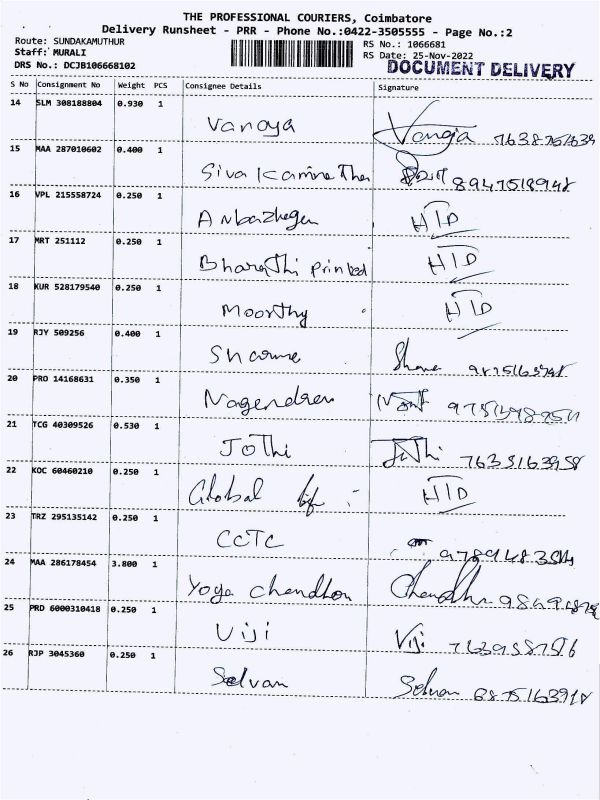 THE PROFESSIONAL COURIERS, Coimbatore
Delivery Runsheet - PRR - Phone No.:0422-3505555 - Page No.:2
Route: SUNDAKAMUTHUR
RS No.: 1066681
Staff: MURALI
RS Date: 25-Nov-2022
DRS No.: DCJB106668102
DOCUMENT DELIVERY
S No Consignment No Weight PCS Consignee Details Signature
14 SLM 308188804 0.930 1 Vanaya
15 MAA 287010602 0.400 1 Siva
16 VPL 215558724 0.250 1 Anbazhagan HID
17 MRT 251112 0.250 1 Bharathi Printed HID
18 KUR 528179540 0.250 1 Moorthy HID
19 RJY 509256 0.400 1 Sharme
20 PRO 14168631 0.350 1 Nagendren
21 TCG 40309526 0.530 1 JoThi JoThi 7635163958
22 KOC 60460210 0.250 1 Global life HID
23 TRZ 295135142 0.250 1 CCTC
24 MAA 286178454 3.800 1 Yoga chandhon
25 PRD 6000310418 0.250 1 Viji Viji
26 RJP 3045360 0.250 1 Selvan Selvan